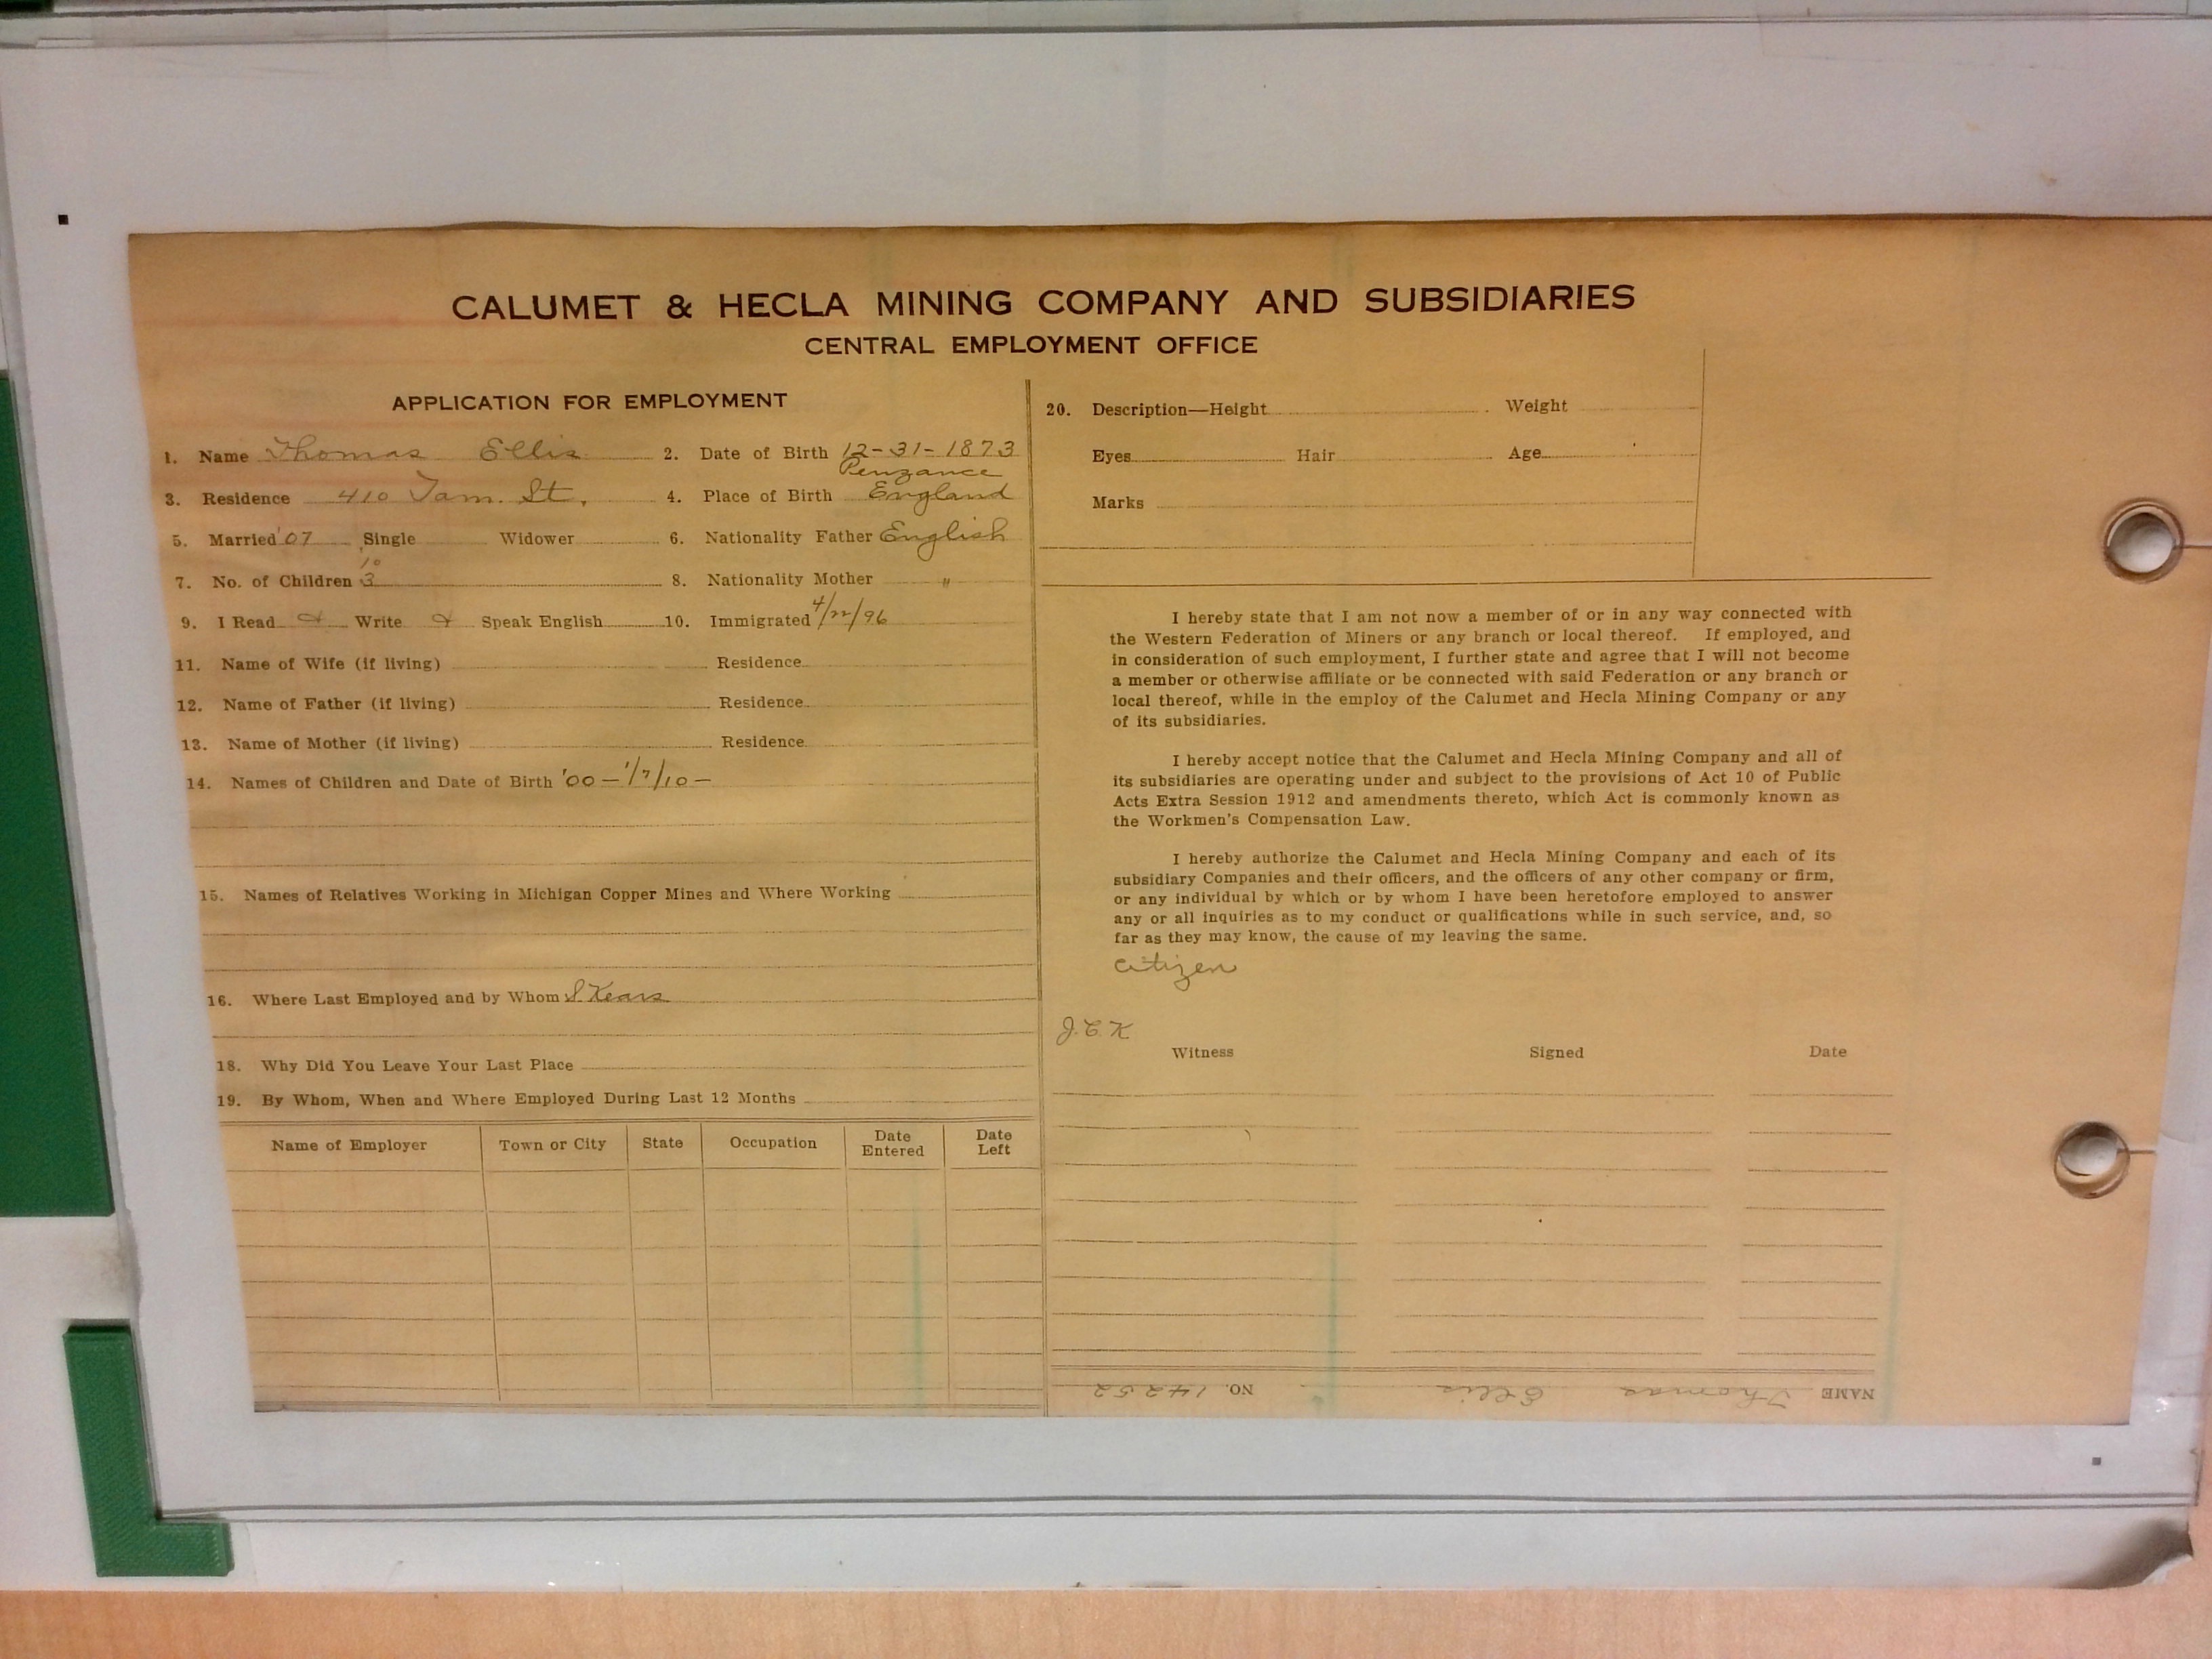 CALUMET & HECLA MINING COMPANY AND SUBSIDIARIES
CENTRAL EMPLOYMENT OFFICE
APPLICATION FOR EMPLOYMENT
1. Name Thomas Ellis 2. Date of Birth 12-31-1873
Penzance
3. Residence 410 Tam. St. 4. Place of Birth England
5. Married '07 Single Widower 6. Nationality Father English
10
7. No. of Children 3 8. Nationality Mother "
9. I Read & Write & Speak English 10. Immigrated 4/22/96
11. Name of Wife (if living) Residence
12. Name of Father (if living) Residence
13. Name of Mother (if living) Residence
14. Names of Children and Date of Birth '00 – '/7/10 –
15. Names of Relatives Working in Michigan Copper Mines and Where Working
16. Where Last Employed and by Whom S Kears
18. Why Did You Leave Your Last Place
19. By Whom, When and Where Employed During Last 12 Months
Name of Employer Town or City State Occupation Date Entered Date Left
20. Description—Height Weight
Eyes Hair Age
Marks
I hereby state that I am not now a member of or in any way connected with
the Western Federation of Miners or any branch or local thereof. If employed, and
in consideration of such employment, I further state and agree that I will not become
a member or otherwise affiliate or be connected with said Federation or any branch or
local thereof, while in the employ of the Calumet and Hecla Mining Company or any
of its subsidiaries.
I hereby accept notice that the Calumet and Hecla Mining Company and all of
its subsidiaries are operating under and subject to the provisions of Act 10 of Public
Acts Extra Session 1912 and amendments thereto, which Act is commonly known as
the Workmen's Compensation Law.
I hereby authorize the Calumet and Hecla Mining Company and each of its
subsidiary Companies and their officers, and the officers of any other company or firm,
or any individual by which or by whom I have been heretofore employed to answer
any or all inquiries as to my conduct or qualifications while in such service, and, so
far as they may know, the cause of my leaving the same.
Citizen
J.C.K
Witness Signed Date
NAME Thomas Ellis NO. 14252